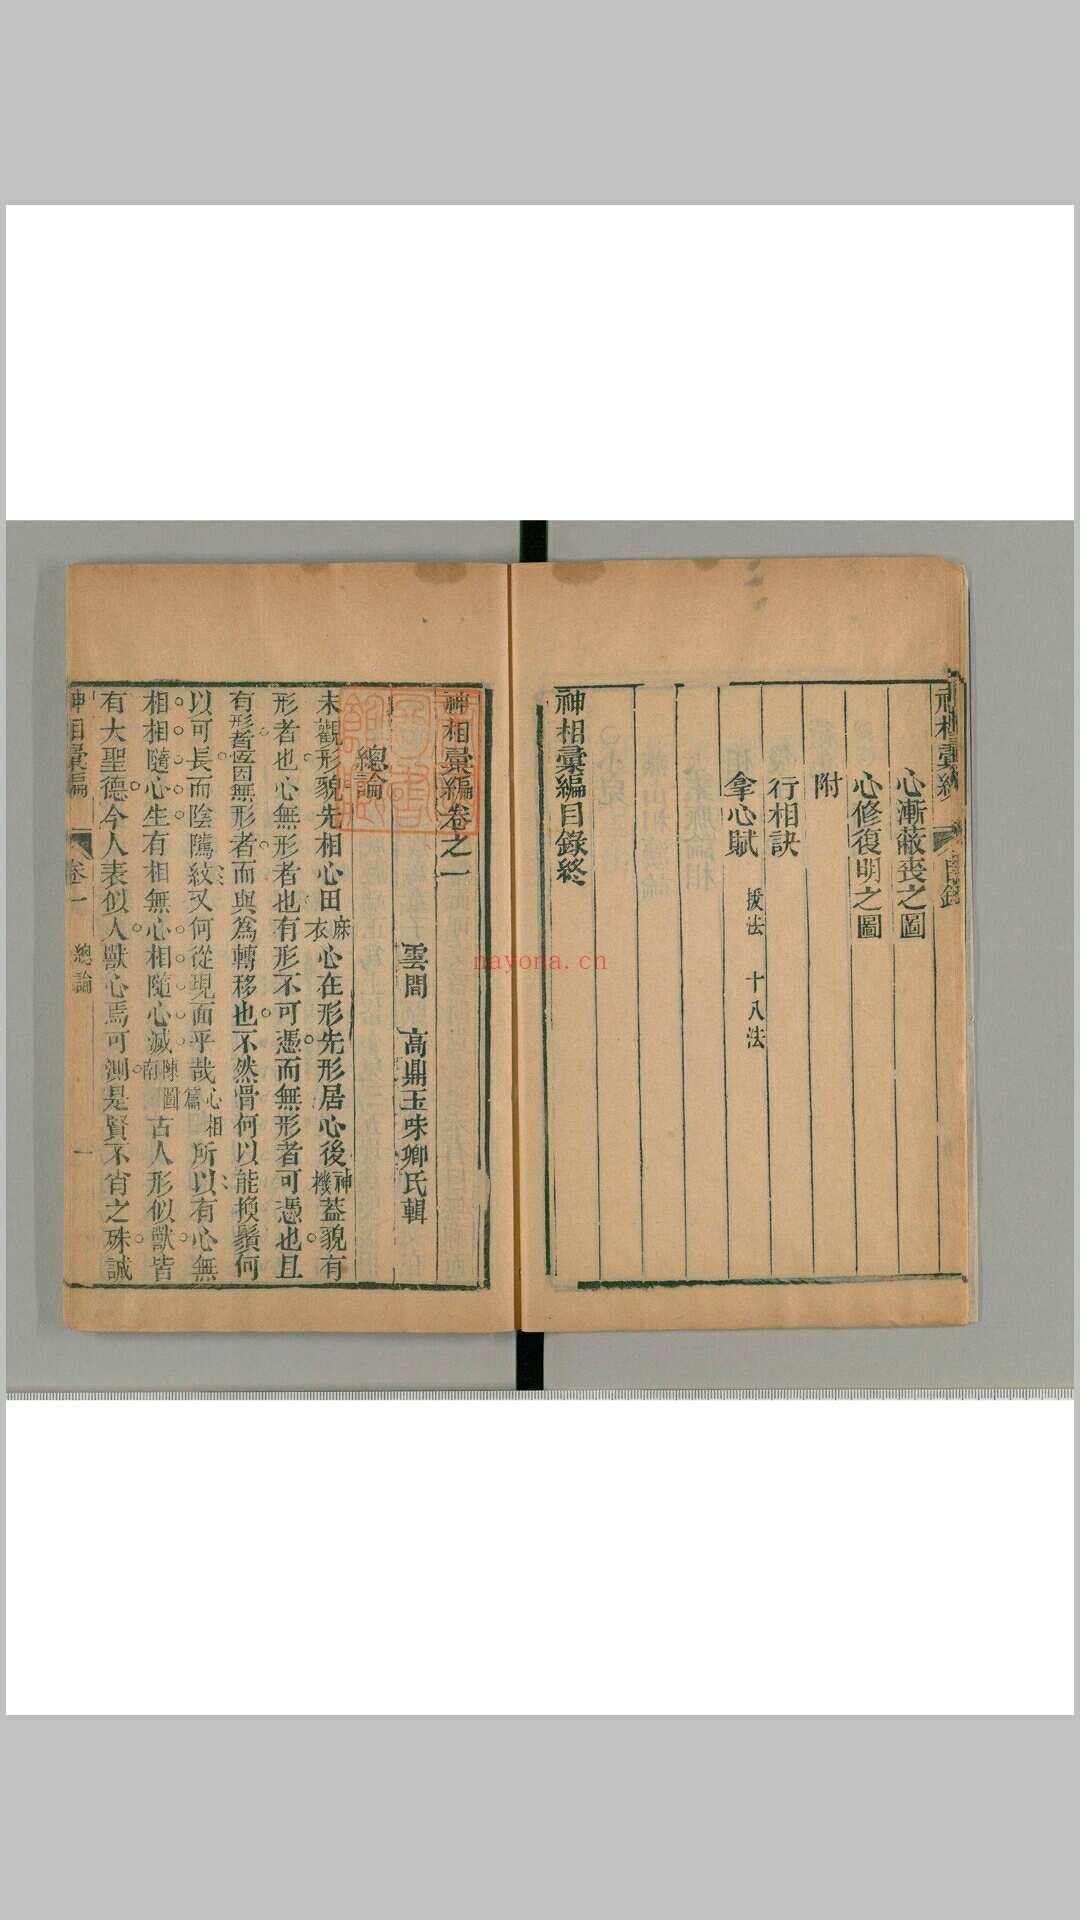 神相彙編 目錄
心漸蔽喪之圖
心修復明之圖
附
行相訣
拿心賦 援法 十八法
神相彙編目錄終
神相彙編卷之一
雲間 高鼎玉味卿氏輯
總論
未觀形貌先相心田麻衣心在形先形居心後神機葢貌有
形者也心無形者也有形不可憑而無形者可憑也且
有形者因無形者而與爲轉移也不然骨何以能換鬚何
以可長而陰隲紋又何從現面乎哉心相篇所以有心無
相相隨心生有相無心相隨心滅陳圖南古人形似獸皆
有大聖德今人表似人獸心焉可測是賢不肖之殊誠
神相彙編 卷一 總論 一
nayona.cn